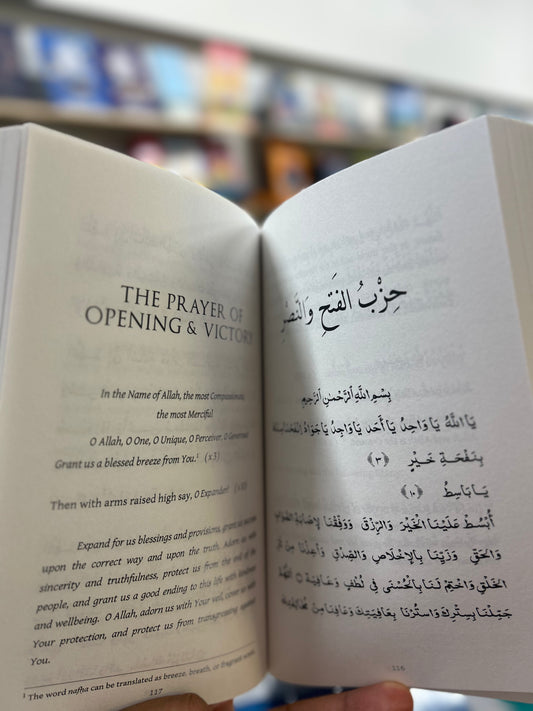 THE PRAYER OF
OPENING & VICTORY
In the Name of Allah, the most Compassionate,
the most Merciful
O Allah, O One, O Unique, O Perceiver, O Generous
Grant us a blessed breeze from You.¹ (x 3)
Then with arms raised high say, O Expander! (x 10)
Expand for us blessings and provisions, grant us success
upon the correct way and upon the truth. Adorn us with
sincerity and truthfulness, protect us from the evil of the
people, and grant us a good ending to this life with kindness
and wellbeing. O Allah, adorn us with Your veil, cover us with
Your protection, and protect us from transgressing against
You.
¹ The word nafha can be translated as breeze, breath, or fragrant
117
حِزْبُ الفَتحِ وَالنَّصْرِ
بِسْمِ اللَّهِ الرَّحْمٰنِ الرَّحِيمِ
يَا اللَّهُ يَا وَاحِدُ يَا أَحَد يَا وَاجِدُ يَا جَوَادُ اِنْفَحْنَا مِنْكَ
بِنَفْحَةِ خَيْرٍ ﴿٣﴾
يَا بَاسِطُ ﴿١٠﴾
أُبْسُطْ عَلَيْنَا الْخَيْرَ وَالرِّزْقَ وَوَفِّقْنَا لِإِصَابَةِ الصَّوَابِ
وَالحَقِّ وَزَيِّنَّا بِالْإِخْلَاصِ وَالصِّدْقِ وَأَعِذْنَا مِنْ شَرِّ
الخَلْقِ وَاخْتِمْ لَنَا بِالْحُسْنَى فِي لُطْفٍ وَعَافِيَةٍ اللَّهُمَّ
جَمِّلْنَا بِسِتْرِكَ وَاسْتُرْنَا بِعَافِيَتِكَ وَعَافِنَا مِنْ مُخَالَفَتِكَ
116